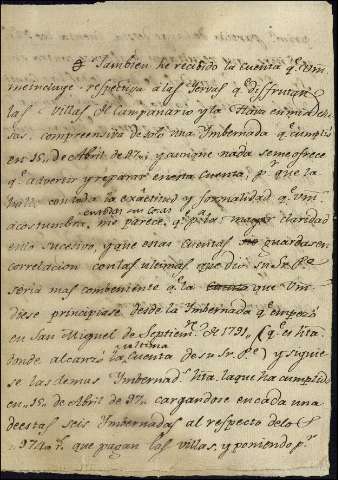 Tambien he recibido la Cuenta q.e Vm
me incluye respectiva a las Yervas q.e disfrutan
las Villas de Campanario y la
comprensiva de solo una Ymbernada q.e cumplió
en 15,, de Abril de 97,, y aunque nada se me ofrece
q.e advertir y reparar en esta Cuenta, p.r que la
con toda la exâctitud y formalidad q.e Vm
acostumbra, me parece q.e p.a mayor claridad
en lo sucesivo, y que estas Cuentas guardasen
correlacion con las ultimas que dio su S.r P.e
seria mas combeniente q.e la que Vm
diese principiase desde la Ymbernada q.e empezó
en San Miguel de Septiem.e de 1791,, (q.e es hta
donde alcanzó la ultima Cuenta de su S.r P.e) y siguie
se las demas Ymbernad.s hta la que ha cumplido
en 15,, de Abril de 97,, cargandose en cada una
de estas seis Ymbernadas al respecto de los
que pagan las Villas, y poniendo p.r